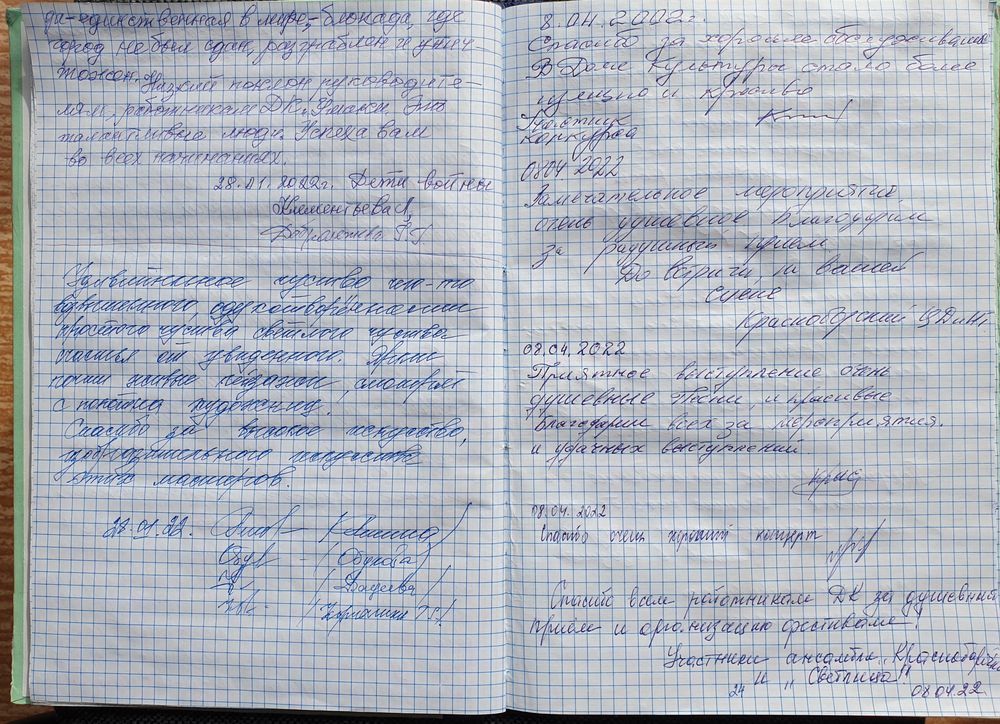 да-единственная в мире,-блокада, где
город не был сдан, разграблен и унич-
тожен.
Низкий поклон руководите-
лям, работникам ДК. Это
талантливые люди. Успеха вам
во всех начинаниях.
28.01.2022г. Дети войны
Клементьева
Удивительное чуство что-то
простого чуства светлого чуства
счастья от увиденного.
почти живые пейзажи, смотрят
с полотна художника.
Спасибо за высокое искуство,
изобразительного искуства
этих мастеров.
28.01.22.
(Обухова)
8.04.2022г.
Спасибо за хорошее обслуживание
В Доме Культуры стало более
изящно и красиво
Участник
конкурса
08 04 2022
Замечательное мероприятие,
очень душевное Благодарим
за радушный приём
До встречи, на вашей
сцене
Красноборский ЦДиНТ
08.04.2022
Приятное выступление очень
душевные Песни, и красивые
Благодарим всех за мероприятия.
и удачных выступлений.
08.04.2022
Спасибо очень хороший концерт
Спасибо всем работникам ДК за душевный
приём и организацию фестиваля!
Участники ансамбля „Красноборочка
и „Светлица"
24 08.04.22